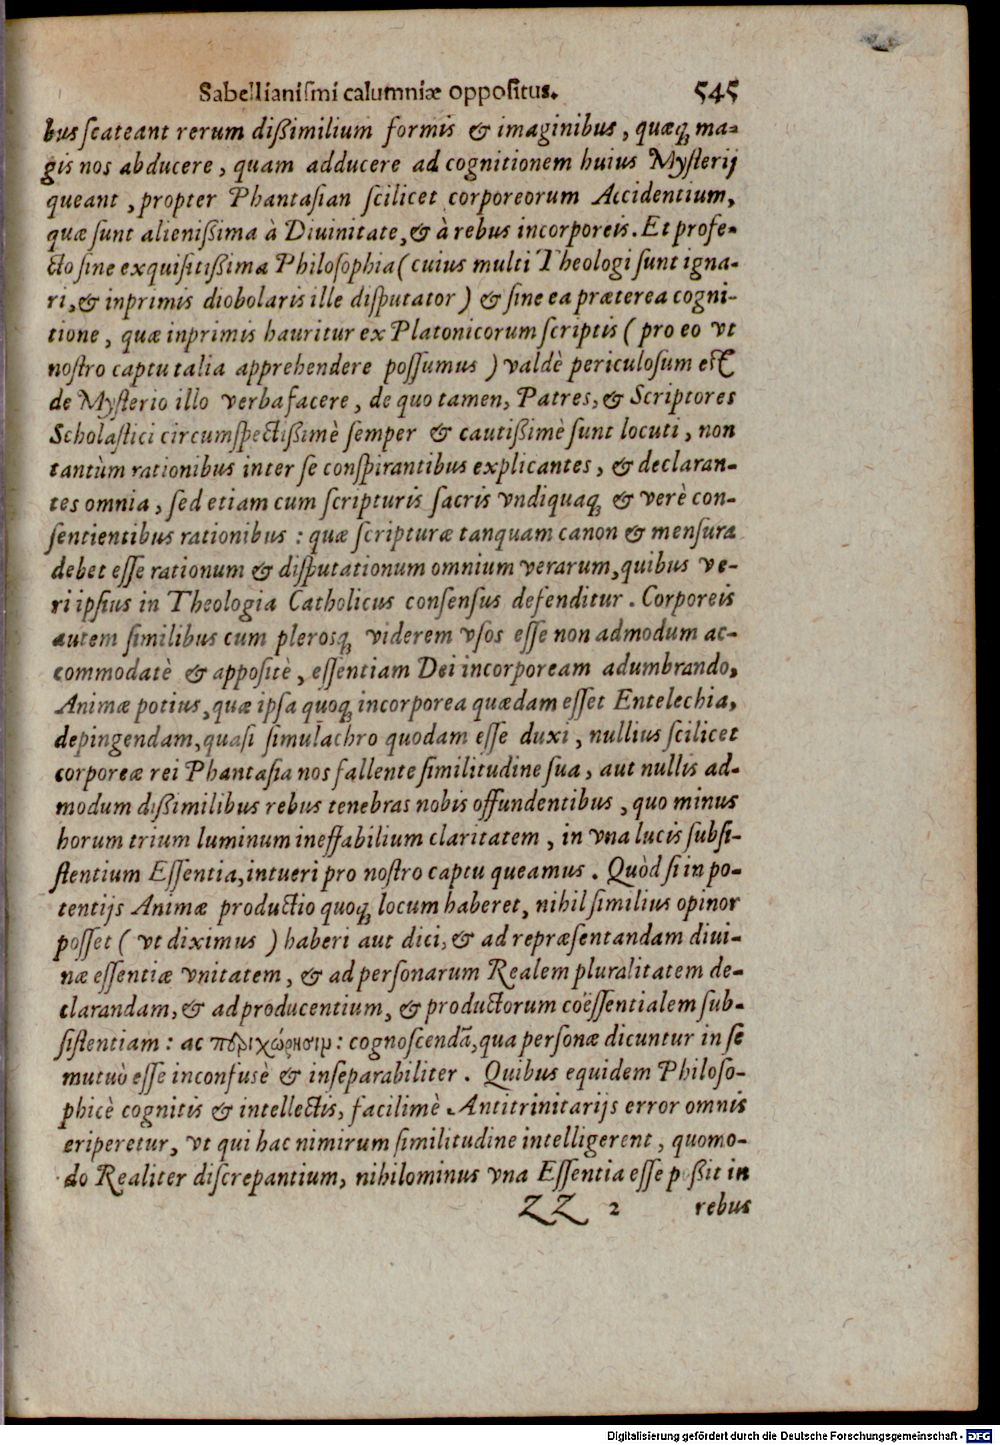 Sabellianiſmi calumniæ oppoſitus. 545
bus ſcateant rerum dißimilium formis & imaginibus, quæq́; ma-
gis nos abducere, quam adducere ad cognitionem huius Myſterij
queant, propter Phantaſian ſcilicet corporeorum Accidentium,
quæ ſunt alienißima à Diuinitate, & à rebus incorporeis. Et profe-
cto ſine exquiſitißima Philoſophia (cuius multi Theologi ſunt igna-
ri, & inprimis diobolaris ille diſputator) & ſine ea præterea cogni-
tione, quæ inprimis hauritur ex Platonicorum ſcriptis (pro eo vt
noſtro captu talia apprehendere poſſumus) valdè periculoſum eſt
de Myſterio illo verba facere, de quo tamen, Patres, & Scriptores
Scholaſtici circumſpectißimè ſemper & cautißimè ſunt locuti, non
tantùm rationibus inter ſe conſpirantibus explicantes, & declaran-
tes omnia, ſed etiam cum ſcripturis ſacris vndiquaq; & verè con-
ſentientibus rationibus: quæ ſcripturæ tanquam canon & menſura
debet eſſe rationum & diſputationum omnium verarum, quibus ve-
ri ipſius in Theologia Catholicus conſenſus defenditur. Corporeis
autem ſimilibus cum plerosq; viderem vſos eſſe non admodum ac-
commodatè & appoſitè, eſſentiam Dei incorpoream adumbrando,
Animæ potius, quæ ipſa quoq; incorporea quædam eſſet Entelechia,
depingendam, quaſi ſimulachro quodam eſſe duxi, nullius ſcilicet
corporeæ rei Phantaſia nos fallente ſimilitudine ſua, aut nullis ad-
modum dißimilibus rebus tenebras nobis offundentibus, quo minus
horum trium luminum ineffabilium claritatem, in vna lucis ſubſi-
ſtentium Eſſentia, intueri pro noſtro captu queamus. Quòd ſi in po-
tentijs Animæ productio quoq; locum haberet, nihil ſimilius opinor
poſſet (vt diximus) haberi aut dici, & ad repræſentandam diui-
næ eſſentiæ vnitatem, & ad perſonarum Realem pluralitatem de-
clarandam, & ad producentium, & productorum coëſſentialem ſub-
ſiſtentiam: ac περιχώρησιμ: cognoſcendā, qua perſonæ dicuntur in ſe
mutuò eſſe inconfuſè & inſeparabiliter. Quibus equidem Philoſo-
phicè cognitis & intellectis, facilimè Antitrinitarijs error omnis
eriperetur, vt qui hac nimirum ſimilitudine intelligerent, quomo-
do Realiter diſcrepantium, nihilominus vna Eſſentia eſſe poßit in
ZZ 2 rebus
Digitalisierung gefördert durch die Deutsche Forschungsgemeinschaft - DFG